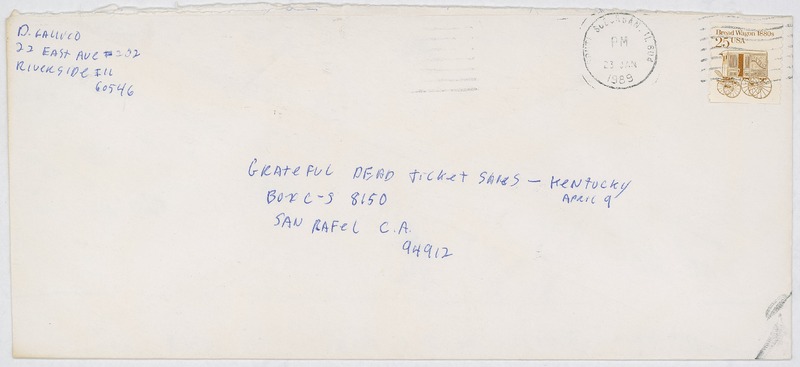 D. Gallico
22 EAST AVE #202
RIVERSIDE Ill
60546
SUBURBAN, IL 604
PM
23 JAN
1989
Bread Wagon 1880s
25 USA
GRATEFUL DEAD TICKET SALES — KENTUCKY
APRIL 9
BOX C-S 8150
SAN RAFEL C.A.
94912